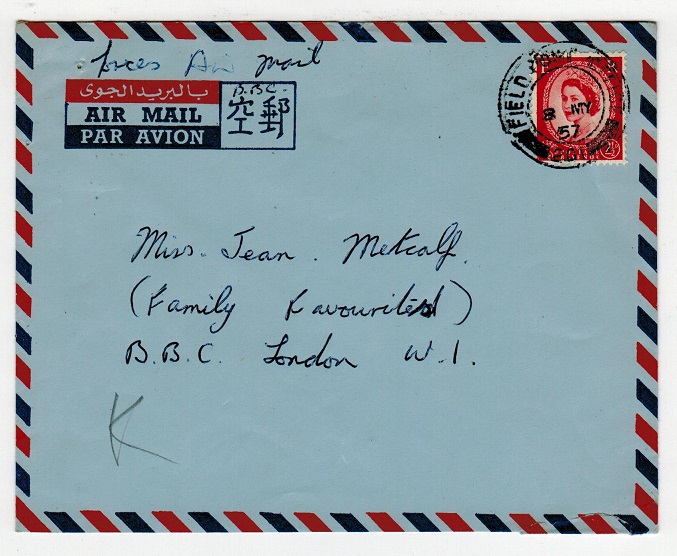 Forces Air Mail
بالبريد الجوى
B.B.C.
AIR MAIL
PAR AVION
空郵
FIELD
8 MY
57
2½
Miss. Jean. Metcalf.
(Family Favourites)
B.B.C. London W.1.
K